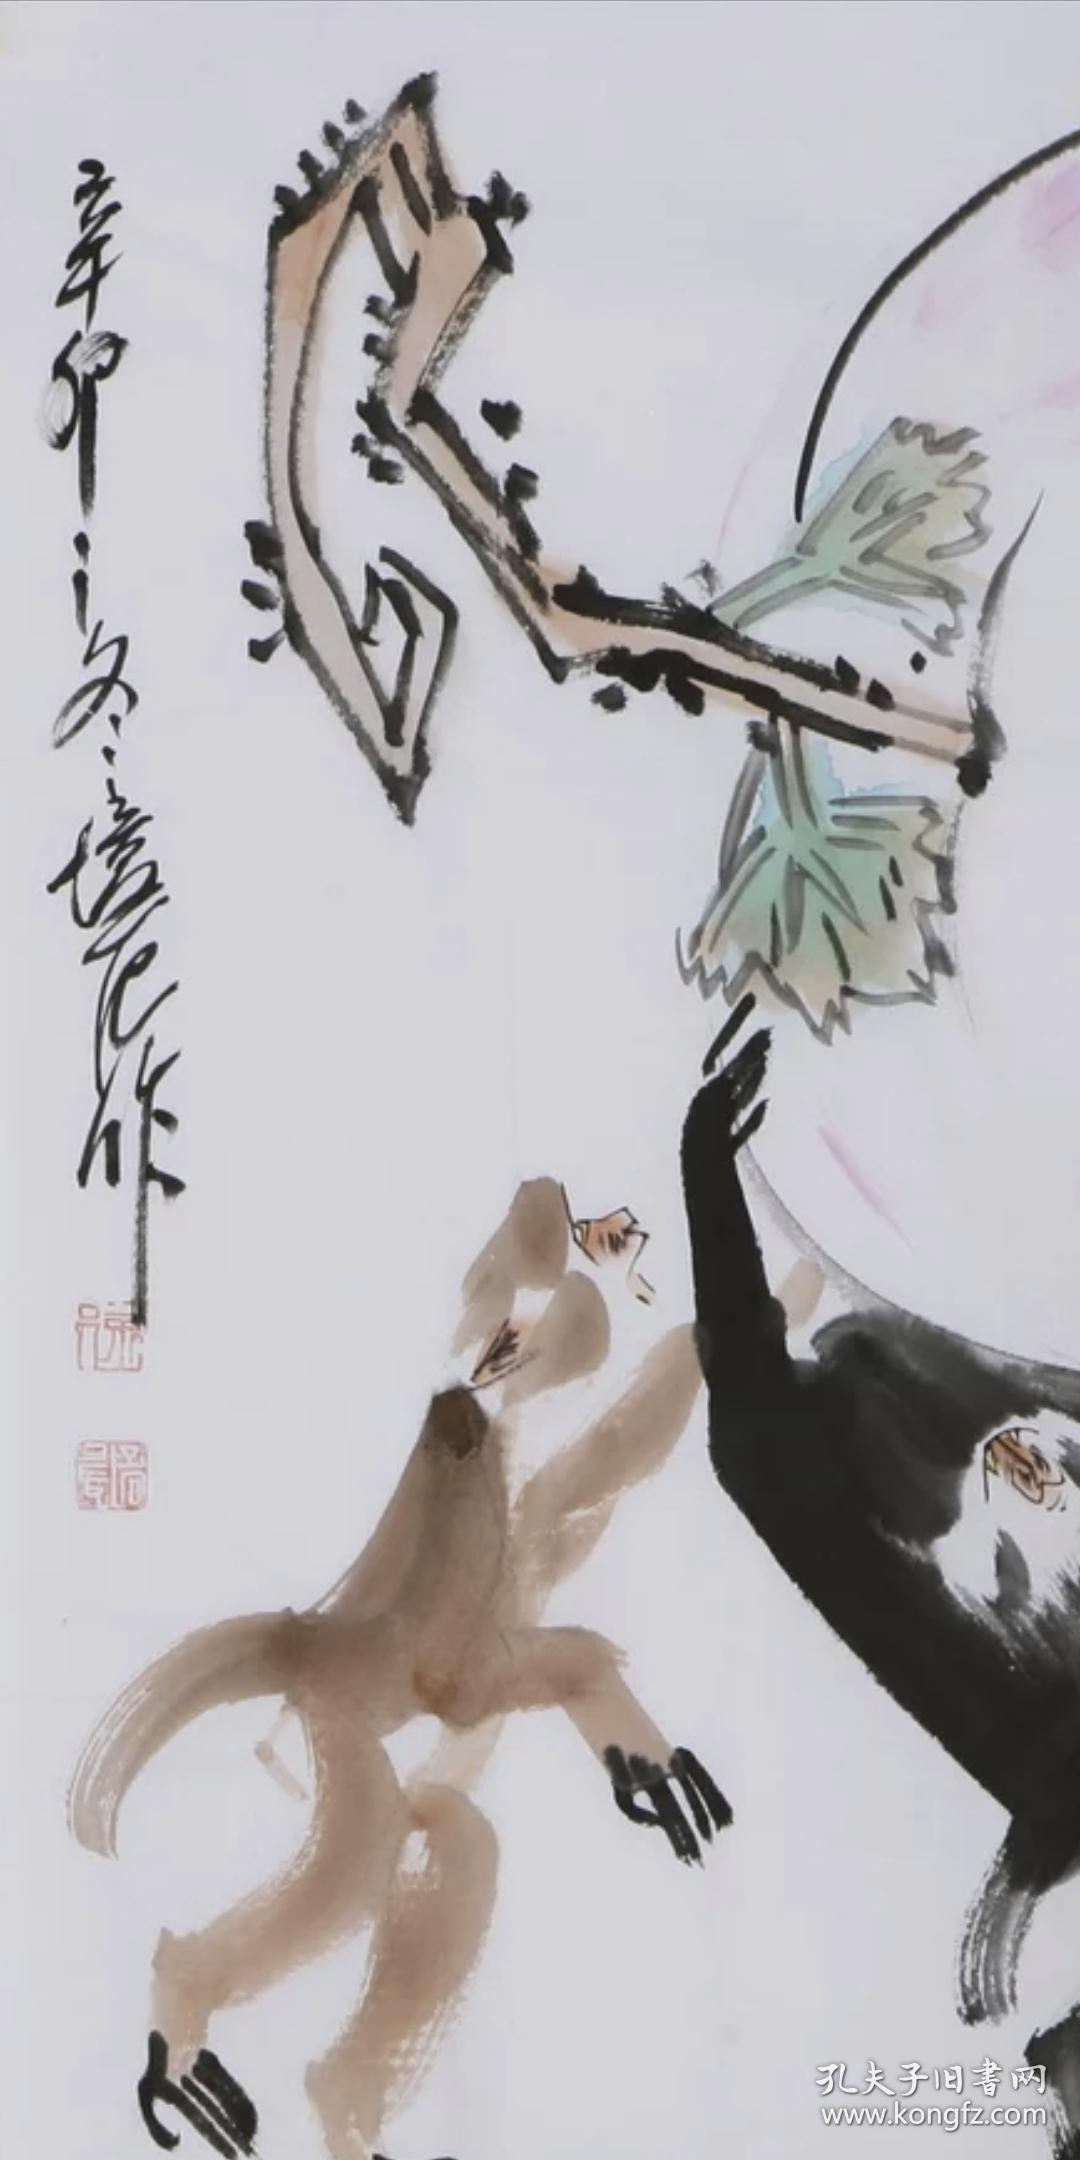 辛卯之冬培元作
孔夫子旧書网
www.kongfz.com